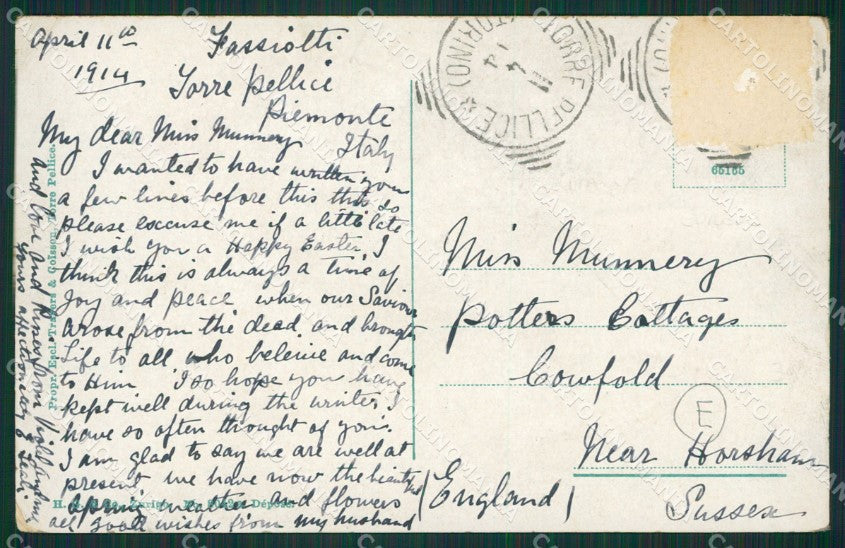 April 11th
1914
Fassiotti
Torre Pellice
Piemonte
Italy
My dear Miss Munnery
I wanted to have written you
a few lines before this so
please excuse me if a little late
I wish you a Happy Easter, I
think this is always a time of
Joy and peace when our Saviour
arose from the dead and brought
Life to all who beleive and come
to Him I so hope you have
kept well during the winter, I
have so often thought of you.
I am glad to say we are well at
present we have now the beautiful
spring weather and flowers
all good wishes from my husband
and love and
yours affectionately
Propr. Escl. & Coïsson, Torre Pellice.
TORRE PELLICE
(TORINO)
11 4 14
65155
Miss Munnery
Potters Cottages
Cowfold
E
Near Horsham
Sussex
(England)
CARTOLINOMANIA